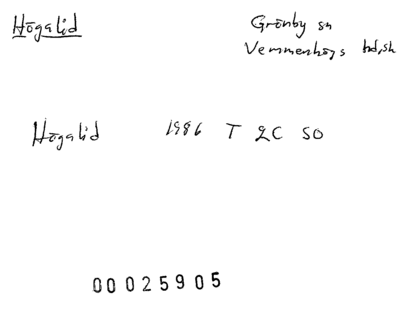 Högalid
Grönby sn
Vemmenhögs hd, sk
Högalid 1986 T 2C SO
00025905